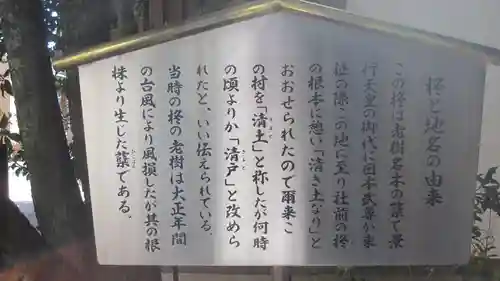 柊と地名の由来
この柊は老樹名木の蘖で景
行天皇の御代に日本武尊が東
征の際この地に至り社前の柊
の根本に憩い「清き土なり」と
おおせられたので爾来こ
の村を「清土」と称したが何時
の頃よりか「清戸」と改めら
れたと、いい伝えられている。
当時の柊の老樹は大正年間
の台風により風損したが其の根
株より生じた蘖である。